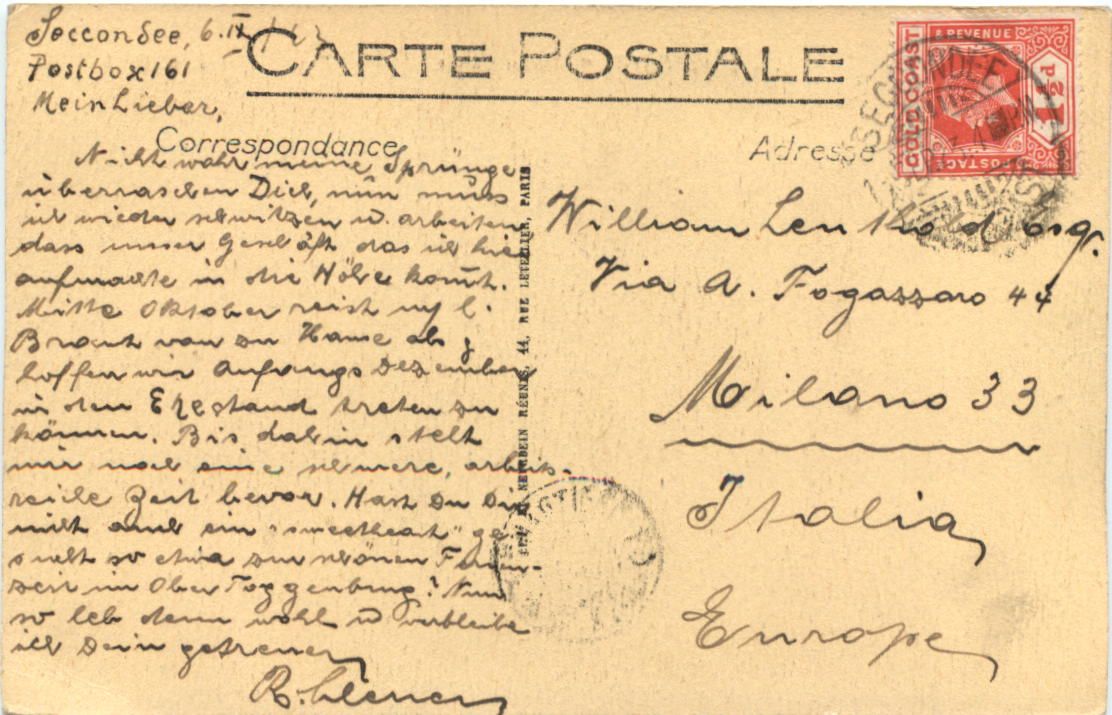 Seccondee, 6.IX/
Postbox 161
Mein Lieber,
CARTE POSTALE
Correspondance
Adresse
Nicht wahr meine Sprünge
überraschen Dich, nun muss
ich wieder schwitzen u. arbeiten
dass unser Geschäft das ich hier
aufmachte in die Höhe kommt.
Mitte Oktober reist m/ l.
Braut von zu Hause ab &
hoffen wir Anfangs Dezember
in den Ehestand treten zu
können. Bis dahin steht
mir noch eine schwere, arbeits-
reiche Zeit bevor. Hast Du Dir
nicht auch ein "sweetheart" ge
sucht so etwa zur schönen Ferien-
zeit im Ober Toggenburg? Nun
so leb denn wohl u verbleibe
ich Dein getreuer
NEURDEIN RÉUNIS, 44, RUE LETELLIER, PARIS
GOLD COAST
& REVENUE
POSTAGE
1½d
SECCONDEE
William Leuthold esq.
Via A. Fogazzaro 44
Milano 33
Italia
Europe